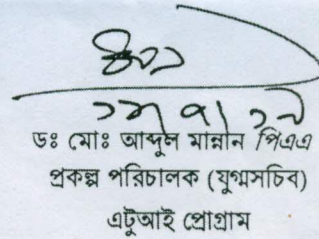 ডঃ মোঃ আব্দুল মান্নান পিএএ
প্রকল্প পরিচালক (যুগ্মসচিব)
এটুআই প্রোগ্রাম